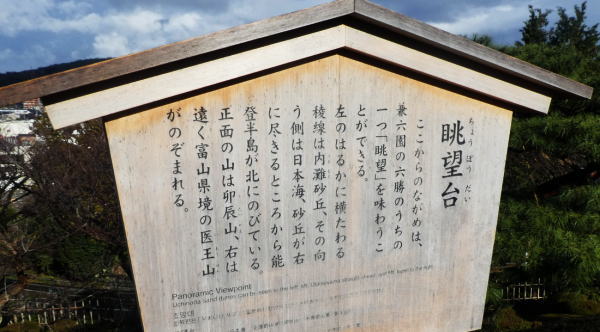 ちょうぼうだい
眺望台
ここからのながめは、
兼六園の六勝のうちの
一つ「眺望」を味わうこ
とができる。
左のはるかに横たわる
稜線は内灘砂丘、その向
う側は日本海、砂丘が右
に尽きるところから能
登半島が北にのびている
正面の山は卯辰山、右は
遠く富山県境の医王山
がのぞまれる。
Panoramic Viewpoint
Uchinada sand dunes can be seen to the left
조망대